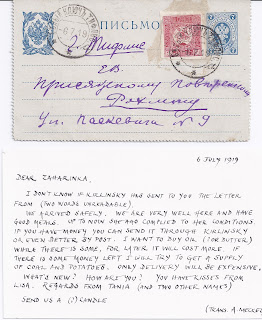 ПИСЬМО
7
Тифлис
Е.В.
Присяжному Повѣренному
Ул. Паскевича № 9
6 JULY 1919
DEAR ZAHARINKA,
I DON'T KNOW IF KIRLINSKY HAS SENT TO YOU THE LETTER
FROM (TWO WORDS UNREADABLE).
WE ARRIVED SAFELY. WE ARE VERY WELL HERE AND HAVE
GOOD MEALS. UP TO NOW SHE HAD COMPLIED TO HER CONDITIONS.
IF YOU HAVE MONEY YOU CAN SEND IT THROUGH KIRLINSKY
OR EVEN BETTER BY POST. I WANT TO BUY OIL (OR BUTTER)
WHILE THERE IS SOME, FOR LATER IT WILL COST MORE. IF
THERE IS SOME MONEY LEFT I WILL TRY TO GET A SUPPLY
OF COAL AND POTATOES. ONLY DELIVERY WILL BE EXPENSIVE,
WHAT'S NEW? HOW ARE YOU? YOU HAVE KISSES FROM
LIDA. REGARDS FROM TANIA (AND TWO OTHER NAMES)
SEND US A (?) CANDLE
(TRANS A. MECKEL